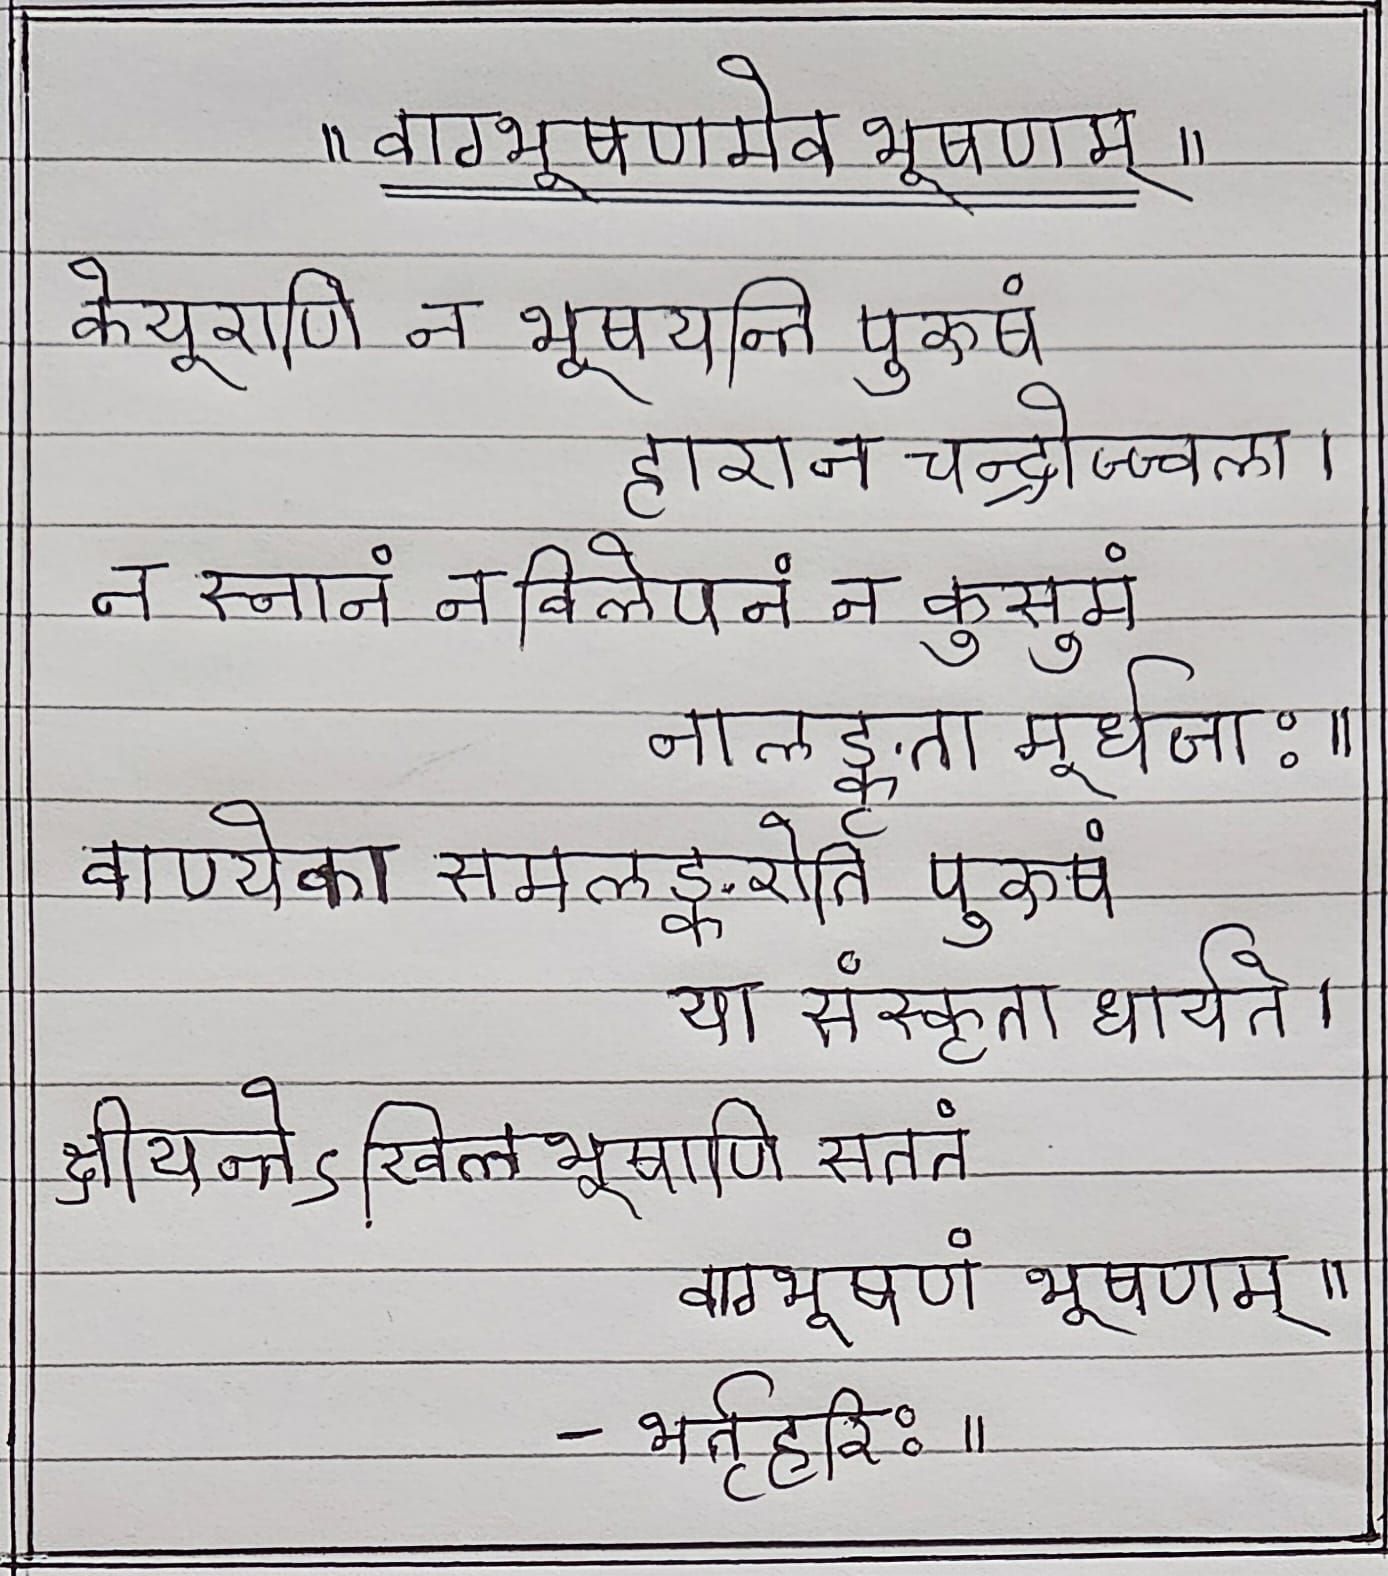 ॥ वाग्भूषणमेव भूषणम् ॥
केयूराणि न भूषयन्ति पुरुषं
हारा न चन्द्रोज्ज्वला ।
न स्नानं न विलेपनं न कुसुमं
नालङ्कृता मूर्धजाः ॥
वाण्येका समलङ्करोति पुरुषं
या संस्कृता धार्यते ।
क्षीयन्तेऽखिलभूषाणि सततं
वाग्भूषणं भूषणम् ॥
- भर्तृहरिः ॥